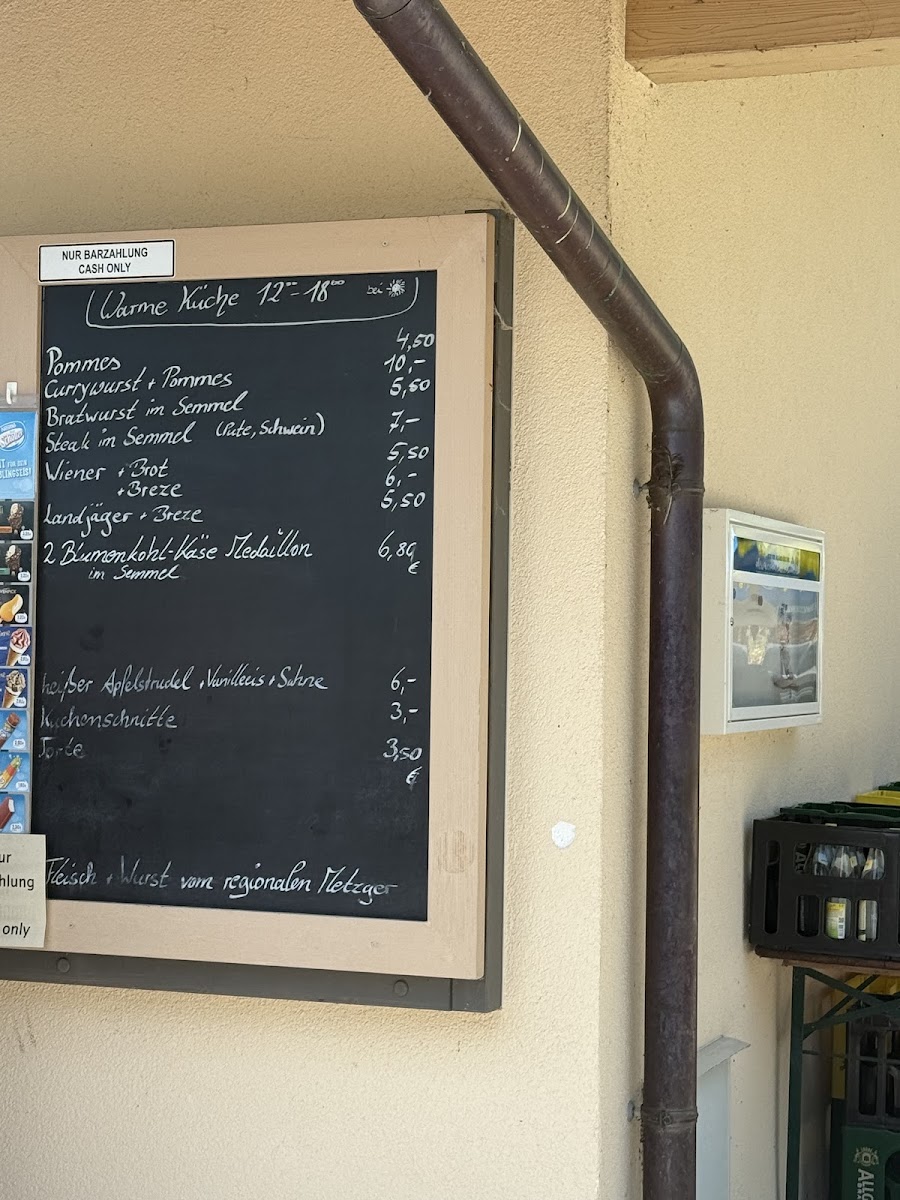 NUR BARZAHLUNG
CASH ONLY
Warme Küche 12⁰⁰-18⁰⁰ bei
Pommes 4,50
Currywurst + Pommes 10,-
Bratwurst im Semmel 5,50
Steak im Semmel (Pute, Schwein) 7,-
Wiener + Brot 5,50
+ Breze 6,-
Landjäger + Breze 5,50
2 Blumenkohl-Käse Medaillon 6,80
im Semmel €
heißer Apfelstrudel + Vanilleeis + Sahne 6,-
Kuchenschnitte 3,-
Torte 3,50
€
Fleisch + Wurst vom regionalen Metzger
ur
hlung
only